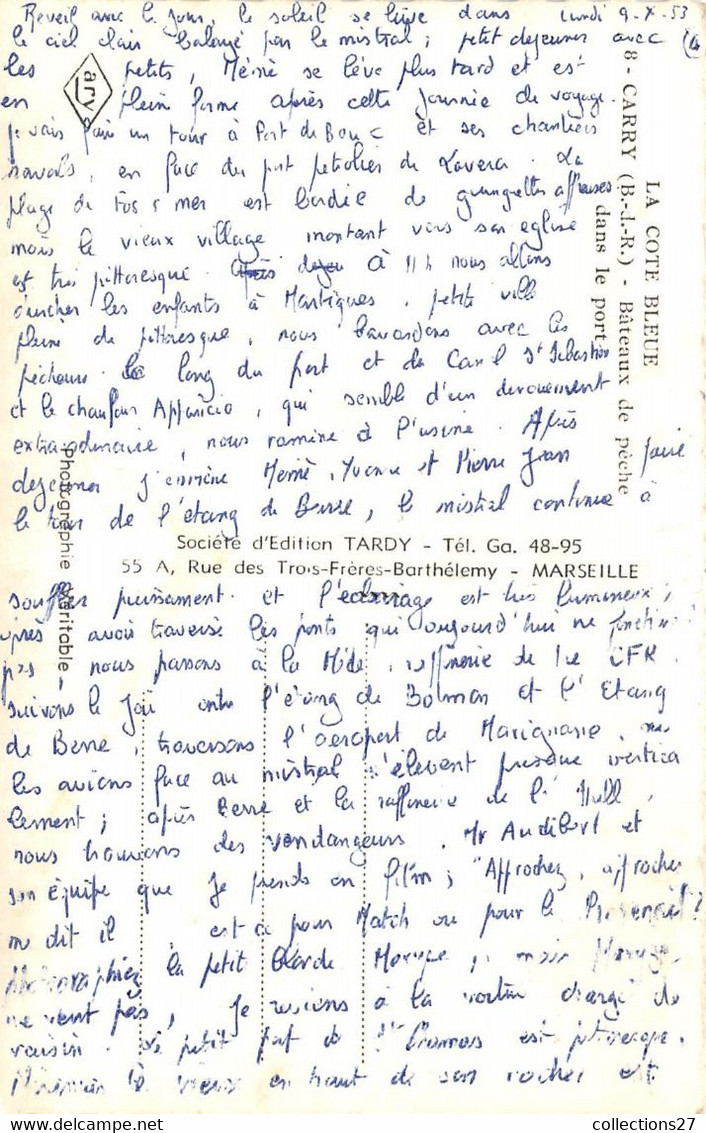 Lundi 9-X-53
Reveil avec le jour, le soleil se lève dans
le ciel clair balayé par le mistral ; petit dejeuner avec
les petits, Mémé se lève plus tard et est
en pleine forme après cette journée de voyage.
je vais faire un tour à Port de Bouc et ses chantiers
navals, en face du port petrolier de Lavera. La
plage de Fos s mer est bordée de guinguettes affreuses
mais le vieux village montant vers son eglise
est très pittoresque. après dejeu à 11 h nous allons
chercher les enfants à Martigues, petite ville
pleine de pittoresque, nous bavardons avec les
pêcheurs le long du port et du Canal St Sebastien
et le chauffeur Apparicio, qui semble d'un devouement
extraordinaire, nous ramène à l'usine. Après
dejeuner j'emmène Mémé, Yvonne et Pierre Jean faire
le tour de l'étang de Berre, le mistral continue à
souffler puissament et l'eclairage est très lumineux ;
après avoir traversé les ponts qui aujourd'hui ne
pas, nous passons à la Mède, raffinerie de la CFR.
suivons le Jai entre l'étang de Bolmon et l'Etang
de Berre, traversons l'aeroport de Marignane,
les avions face au mistral s'élèvent presque vertica
lement ; après Berre et la raffinerie de la Shell,
nous trouvons des vendangeurs, Mr Audibert et
son équipe que je prends en film ; "Approchez, approchez
me dit il est ce pour Match ou pour le Provençal ?
photographiez la petite blonde
ne veut pas, je reviens à la voiture chargé de
raisin. Le petit port de St Chamas est pittoresque.
le vieux en haut de son rocher est
LA COTE BLEUE
8 - CARRY (B.-d.-R.) - Bâteaux de pêche
dans le port
ary
Photographie Véritable
Société d'Edition TARDY - Tél. Ga. 48-95
55 A, Rue des Trois-Frères-Barthélemy - MARSEILLE
collections27